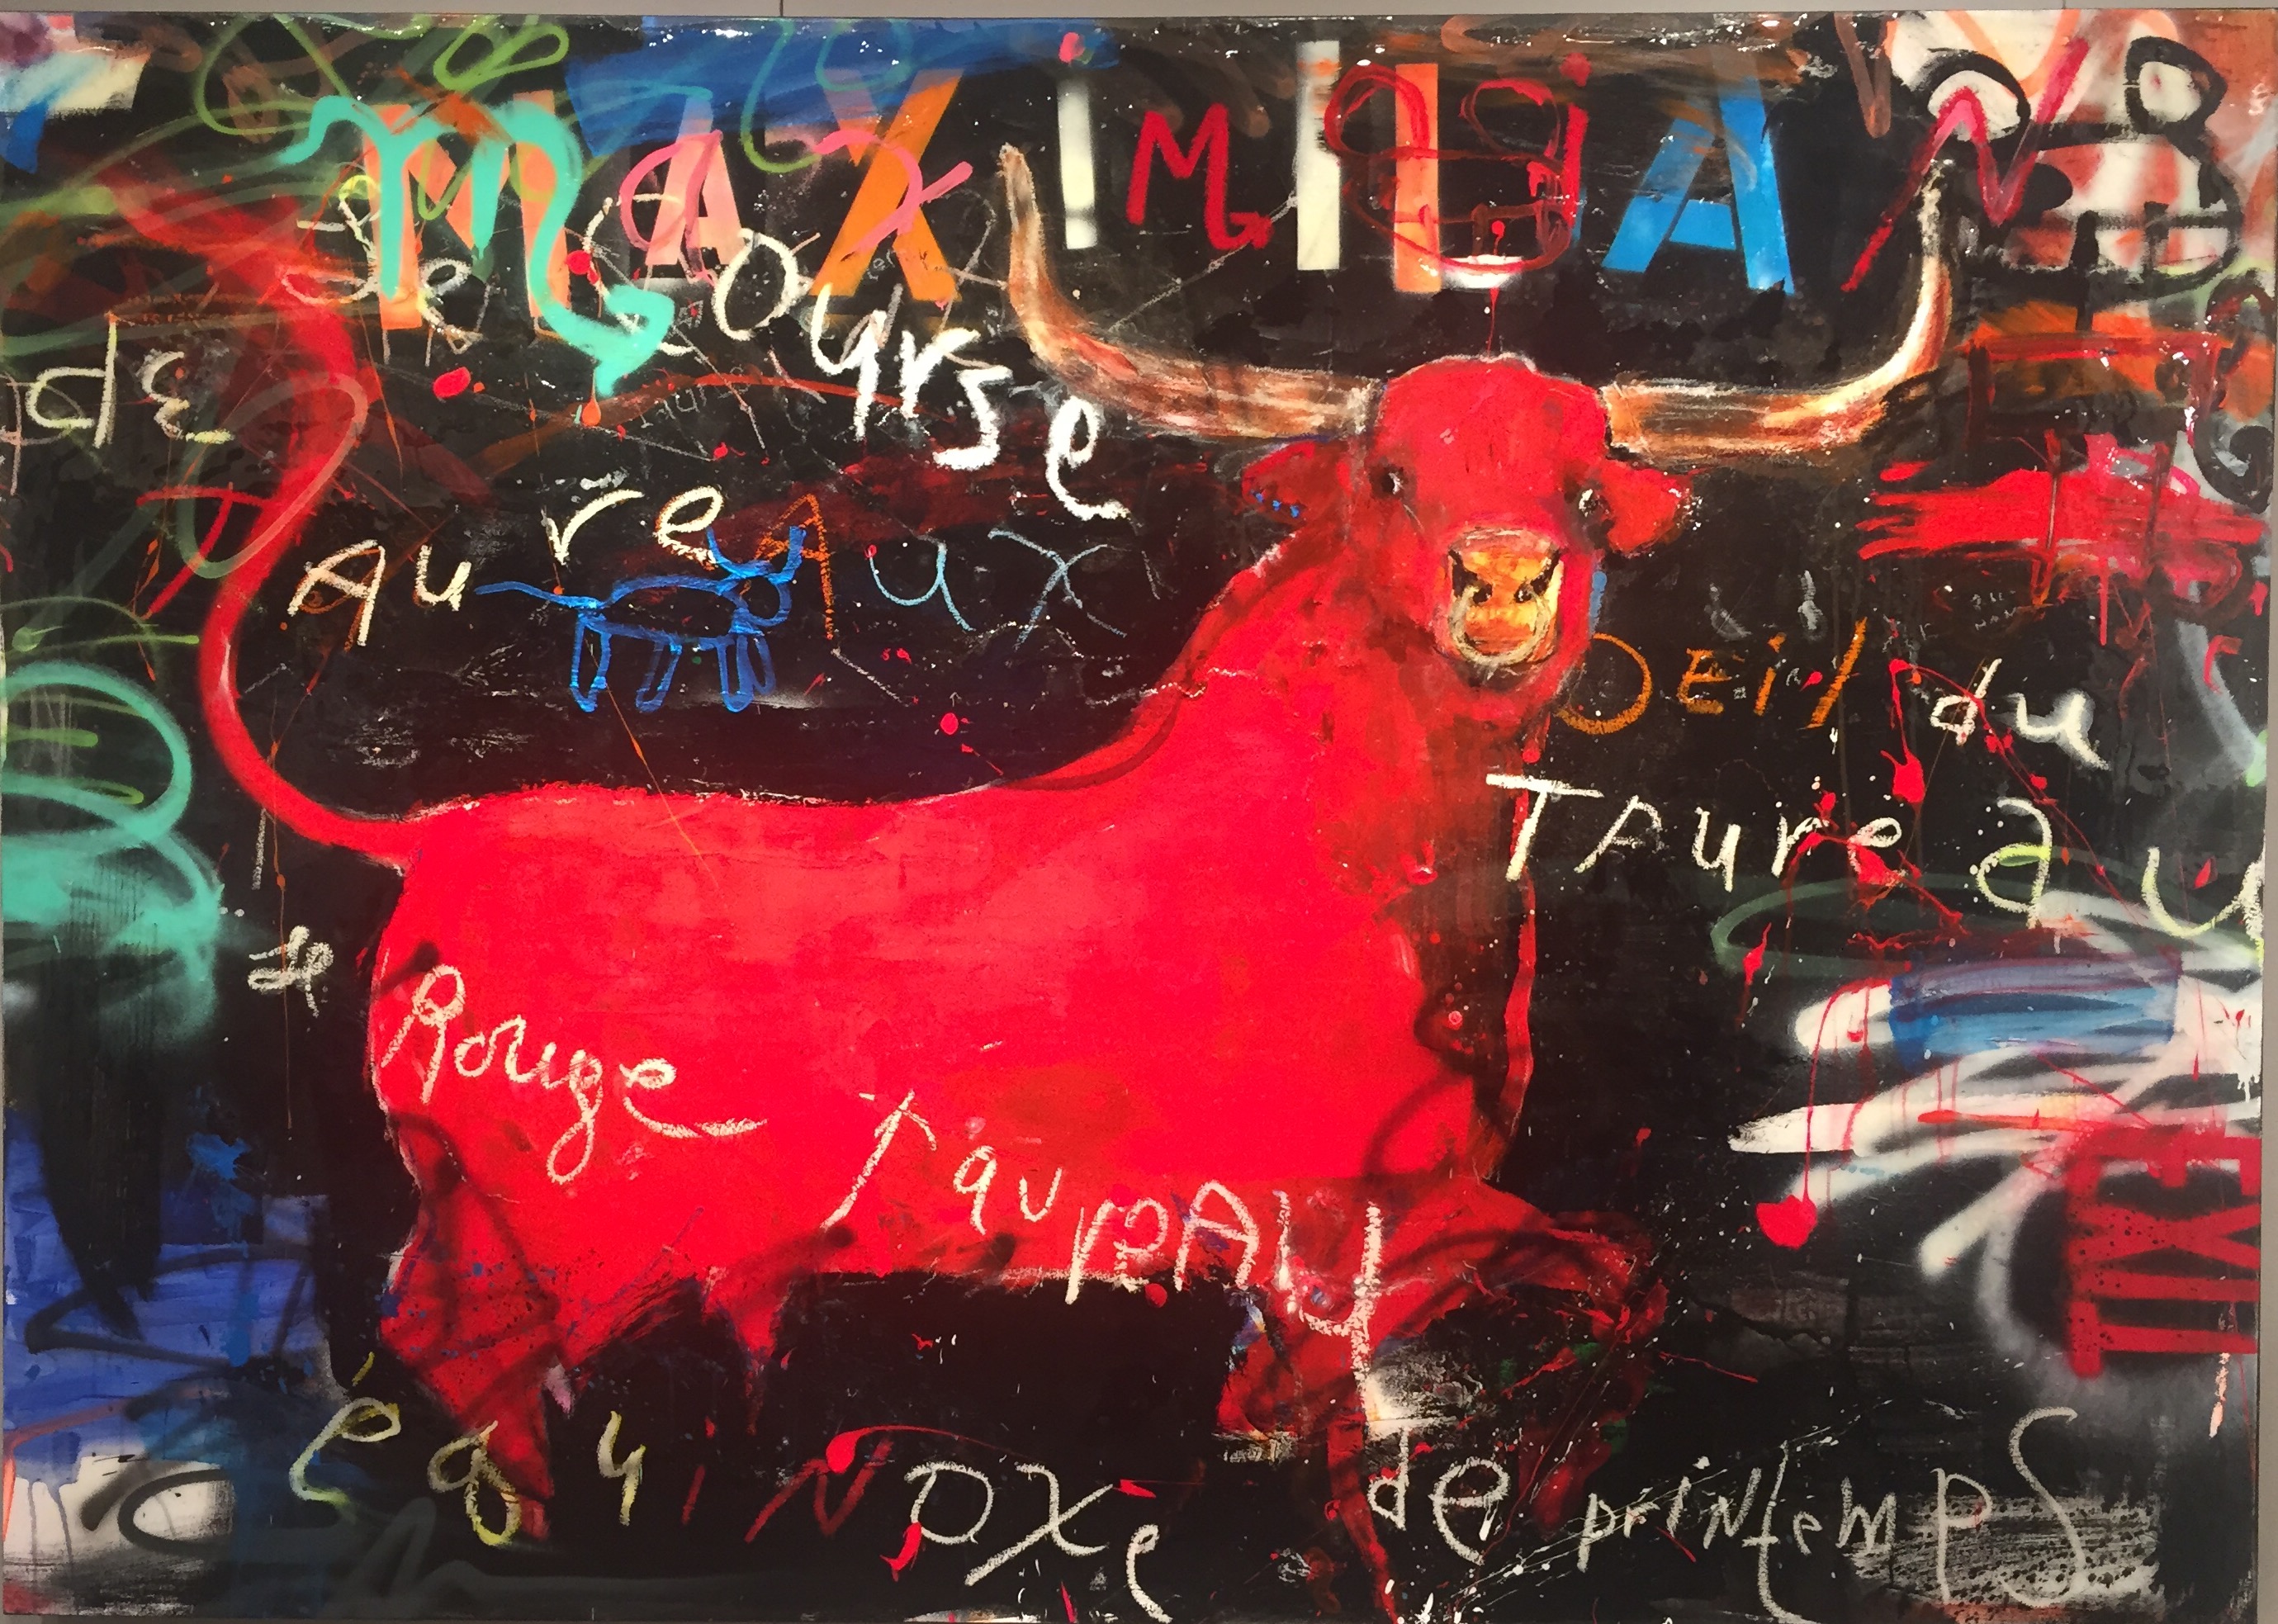 MAXiMiLiAN
de course
de
Aure Aux
OEil du
TAureau
le
Rouge TaureAu
équiNoxe de priNtemps
EXIT